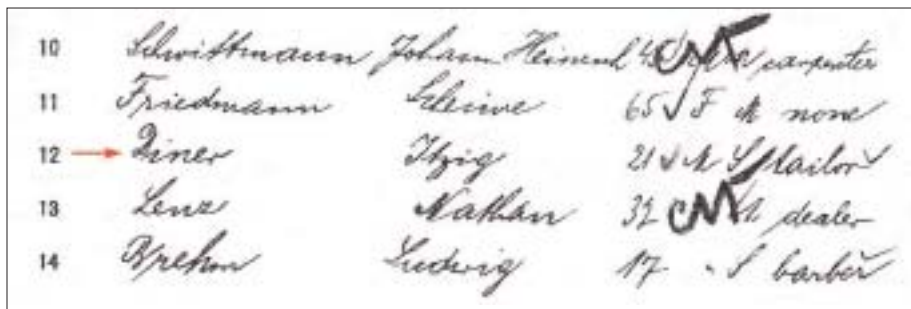 10 Schwittmann Johann Heinrich carpenter
11 Friedmann 65 F M none
12 Diner Itzig 21 M S tailor
13 Lenz Nathan 32 M dealer
14 Brehm Ludwig 17 " S barber